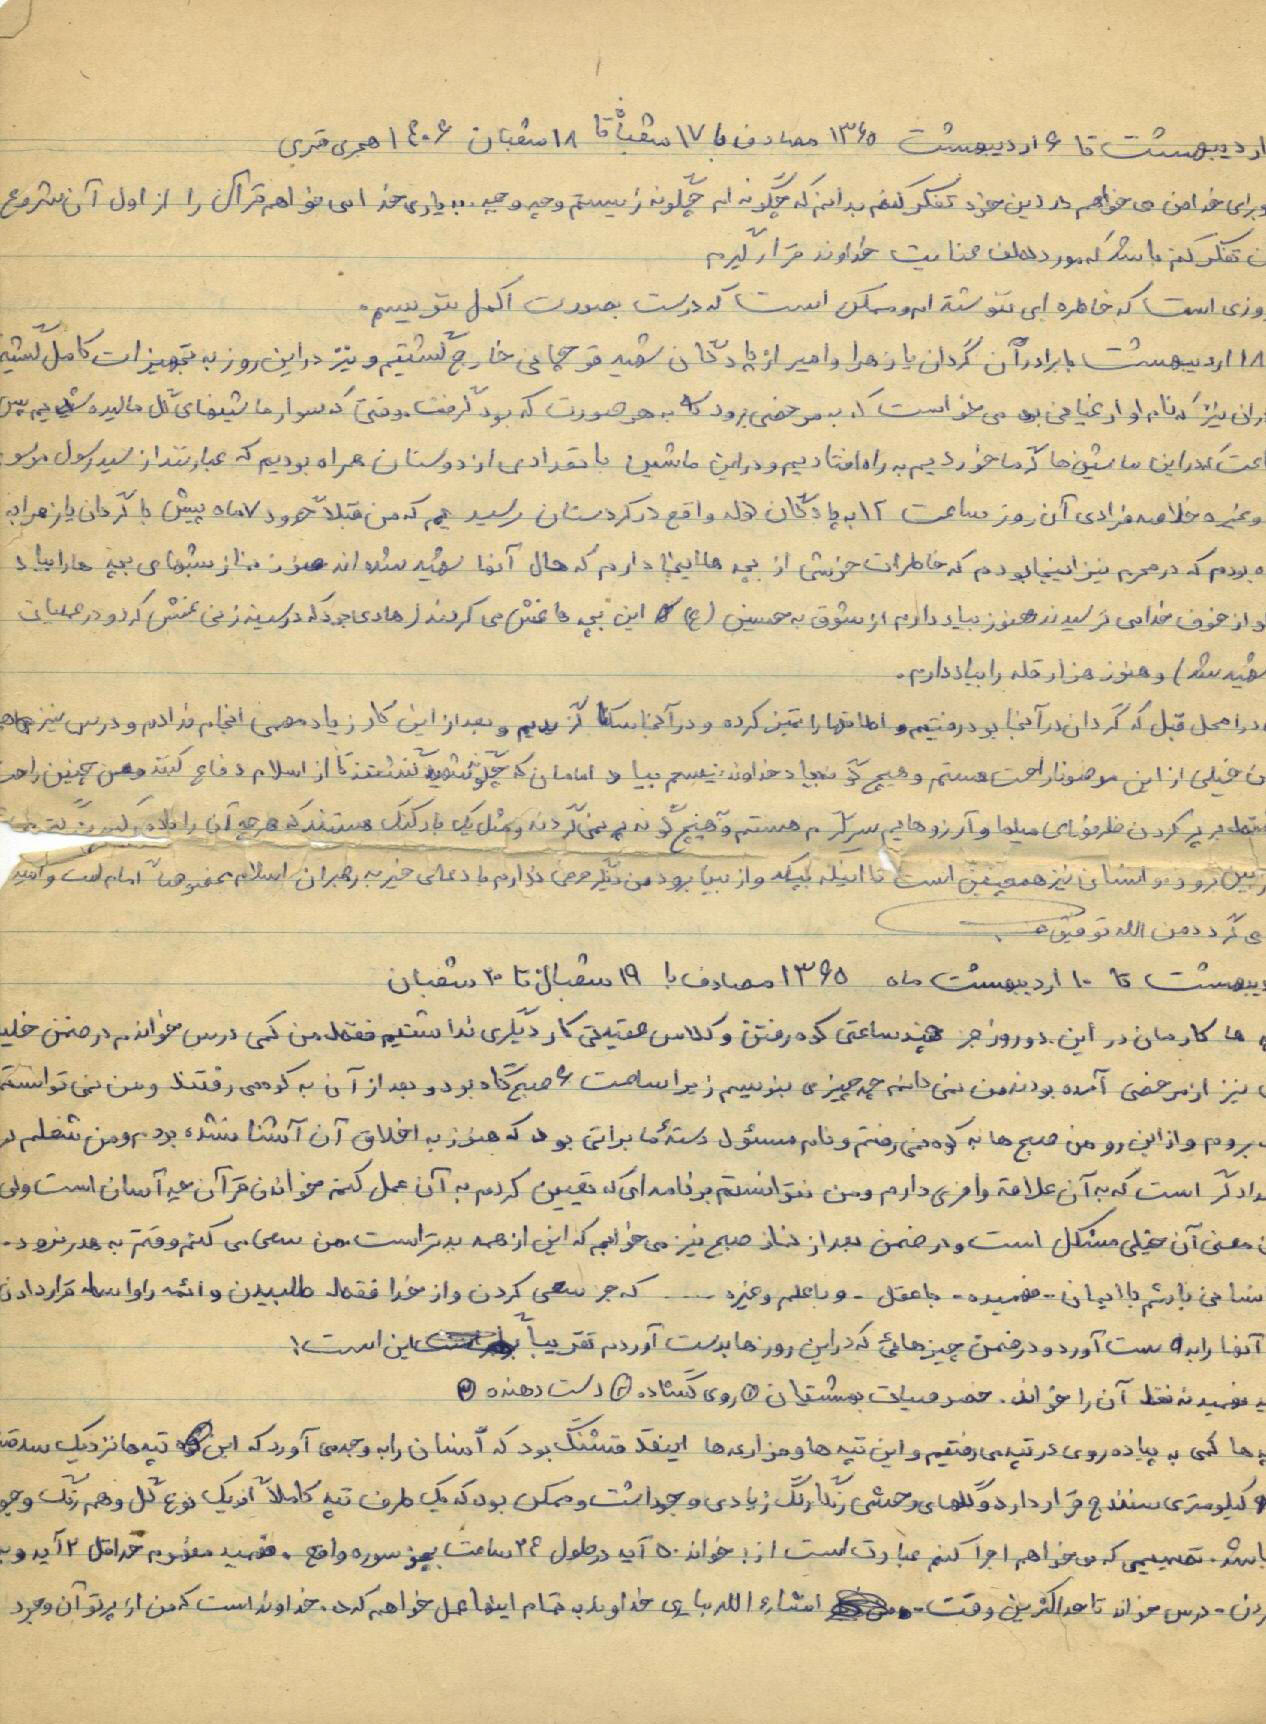 اردیبهشت تا ۶ اردیبهشت ۱۳۶۵ مصادف با ۱۷ شعبان تا ۱۸ شعبان ۱۴۰۶ هجری قمری
برای خدا من می خواهم در دین خود تفکر کنم بدانم که چگونه ام چگونه زیستم و چه و چه. به یاری خدا می خواهم قرآن را از اول آن شروع
تفکر کنم باشد که مورد لطف عنایت خداوند قرار گیرم
روزی است که خاطره ای ننوشته ام و ممکن است که درست بصورت اکمل ننویسم.
۱۸ اردیبهشت با برادران گردان یا زهرا و امیر از پادگان شهید خارج گشتیم و نیز در این روز به تجهیزات کامل گشتیم
نیز که نام او ارغیاجی بود می خواست که به مرخصی برود که به هر صورت که بود گرفت. وقتی که سوار ماشینهای گل مالیده شدیم پس
در این ماشین ها گرما خوردیم به راه افتادیم و در این ماشین با تعدادی از دوستان همراه بودیم که عبارتند از سید رسول موسوی
و غیره خلاصه فرادی آن روز ساعت ۱۲ به پادگان واقع در کردستان رسیدیم که من قبلاً حدود ۷ ماه پیش با گردان یا زهرا به
بودم که در محرم نیز اینجا بودم که خاطرات خوشی از بچه ها اینجا دارم که حال آنها شهید شده اند هنوز من از شبهای بچه ها را بیاد
از خوف خدا می ترسیدند هنوز بیاد دارم از شوق به حسین (ع) این بچه ها غش می کردند (هادی بود که در سینه زنی غش کرد و در عملیات
شهید شد) و هنوز هزار قله را بیاد دارم.
در محل قبل که گردان در آنجا بود رفتیم و اطاقها را تمیز کرده و در آنجا سکنا گزیدیم و بعد از این کار زیاد مهمی انجام ندادم و درس نیز
خیلی از این موضوع ناراحت هستم و هیچ گونه بیاد خداوند نیستم بیاد امامان که چگونه شهید گشتند تا از اسلام دفاع کنند و من چنین راحت
پر کردن ظرفهای میلها و آرزوهایم سرگرم هستم و هیچ گونه پر نمی گردند و مثل یک بادکنک هستند که هر چه آن را باد کنید
برود و انسان نیز همچنین است تا اینکه بترکد و از بین برود من دیگر حرفی ندارم با دعای خیر به رهبران اسلام بخصوص امام امت و امید
می گردد و من الله توفیق
اردیبهشت تا ۱۰ اردیبهشت ماه ۱۳۶۵ مصادف با ۱۹ شعبان تا ۲۰ شعبان
ها کارمان در این دو روز جز چند ساعتی کوه رفتن و کلاس عقیدتی کار دیگری نداشتیم فقط من کمی درس خواندم در ضمن
نیز از مرخصی آمده بودند من نمی دانم چه چیزی بنویسم زیرا ساعت ۶ صبح گاه بود و بعد از آن به کوه می رفتند و من نمی توانستم
بروم و از این رو من صبح ها به کوه نمی رفتم و نام مسئول دسته ما براتی بود که هنوز به اخلاق آن آشنا نشده بودم و من شغلم
امدادگر است که به آن علاقه وافری دارم و من نتوانستم برنامه ای که تعیین کردم به آن عمل کنم خواندن قرآن چه آسان است ولی
معنی آن خیلی مشکل است و در ضمن بعد از نماز صبح نیز می خوابم که این از همه بدتر است. من سعی می کنم وقتم به هدر نرود.
باشم با ایمان - فهمیده - با عقل - و با علم و غیره ---- که جز سعی کردن و از خدا فقط طلبیدن و ائمه را واسطه قرار دادن
آنها را بدست آورد و در ضمن چیزهائی که در این روزها بدست آوردم تقریباً این است:
فهمید نه فقط آن را خواند. خصوصیات بهشتیان ① روی گشاده ② دست دهنده ③
ها کمی به پیاده روی در تپه می رفتیم و این تپه ها و مزارعه ها اینقدر قشنگ بود که انسان را به وجد می آورد که این تپه ها نزدیک سد
کیلومتری سنندج قرار دارد و گلهای وحشی رنگارنگ زیادی وجود داشت و ممکن بود که یک طرف تپه کاملاً از یک نوع گل و هم رنگ وجود
باشد. تصمیمی که می خواهم اجرا کنم عبارت است از: خواندن ۵۰ آیه در طول ۲۴ ساعت بجز سوره واقع. فهمید مفهوم حداقل ۲ آیه و
درس خواندن تا حداکثر این وقت - انشاء الله بیاری خداوند به تمام اینها عمل خواهم کرد. خداوند است که من از پرتو آن وجود